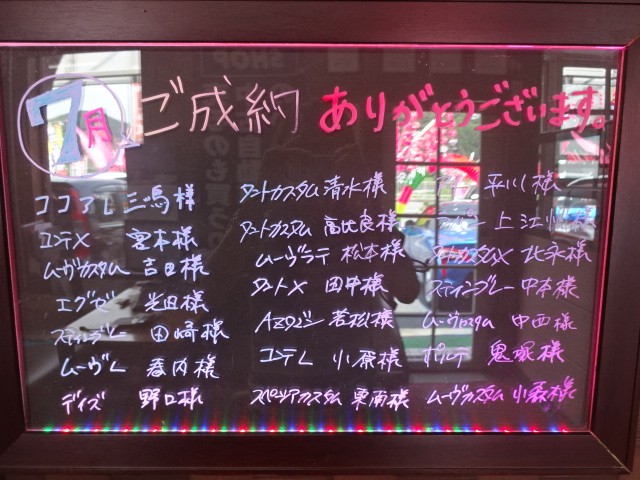 7月 ご成約 ありがとうございます。
ココアL 三嶋様
エッセX 宮本様
ムーヴカスタム 吉田様
エグゼ 光田様
スティングレー 田崎様
ムーヴL 春内様
デイズ 野口様
タントカスタム 清水様
タントカスタム 高比良様
ムーヴラテ 松本様
タントX 田中様
AZワゴン 若松様
コンテL 小原様
スペーシアカスタム 東南様
平川様
上江
タントカスタムX 北永様
スティングレー 中本様
ムーヴカスタム 中西様
ポルテ 鬼塚様
ムーヴカスタム 小森様